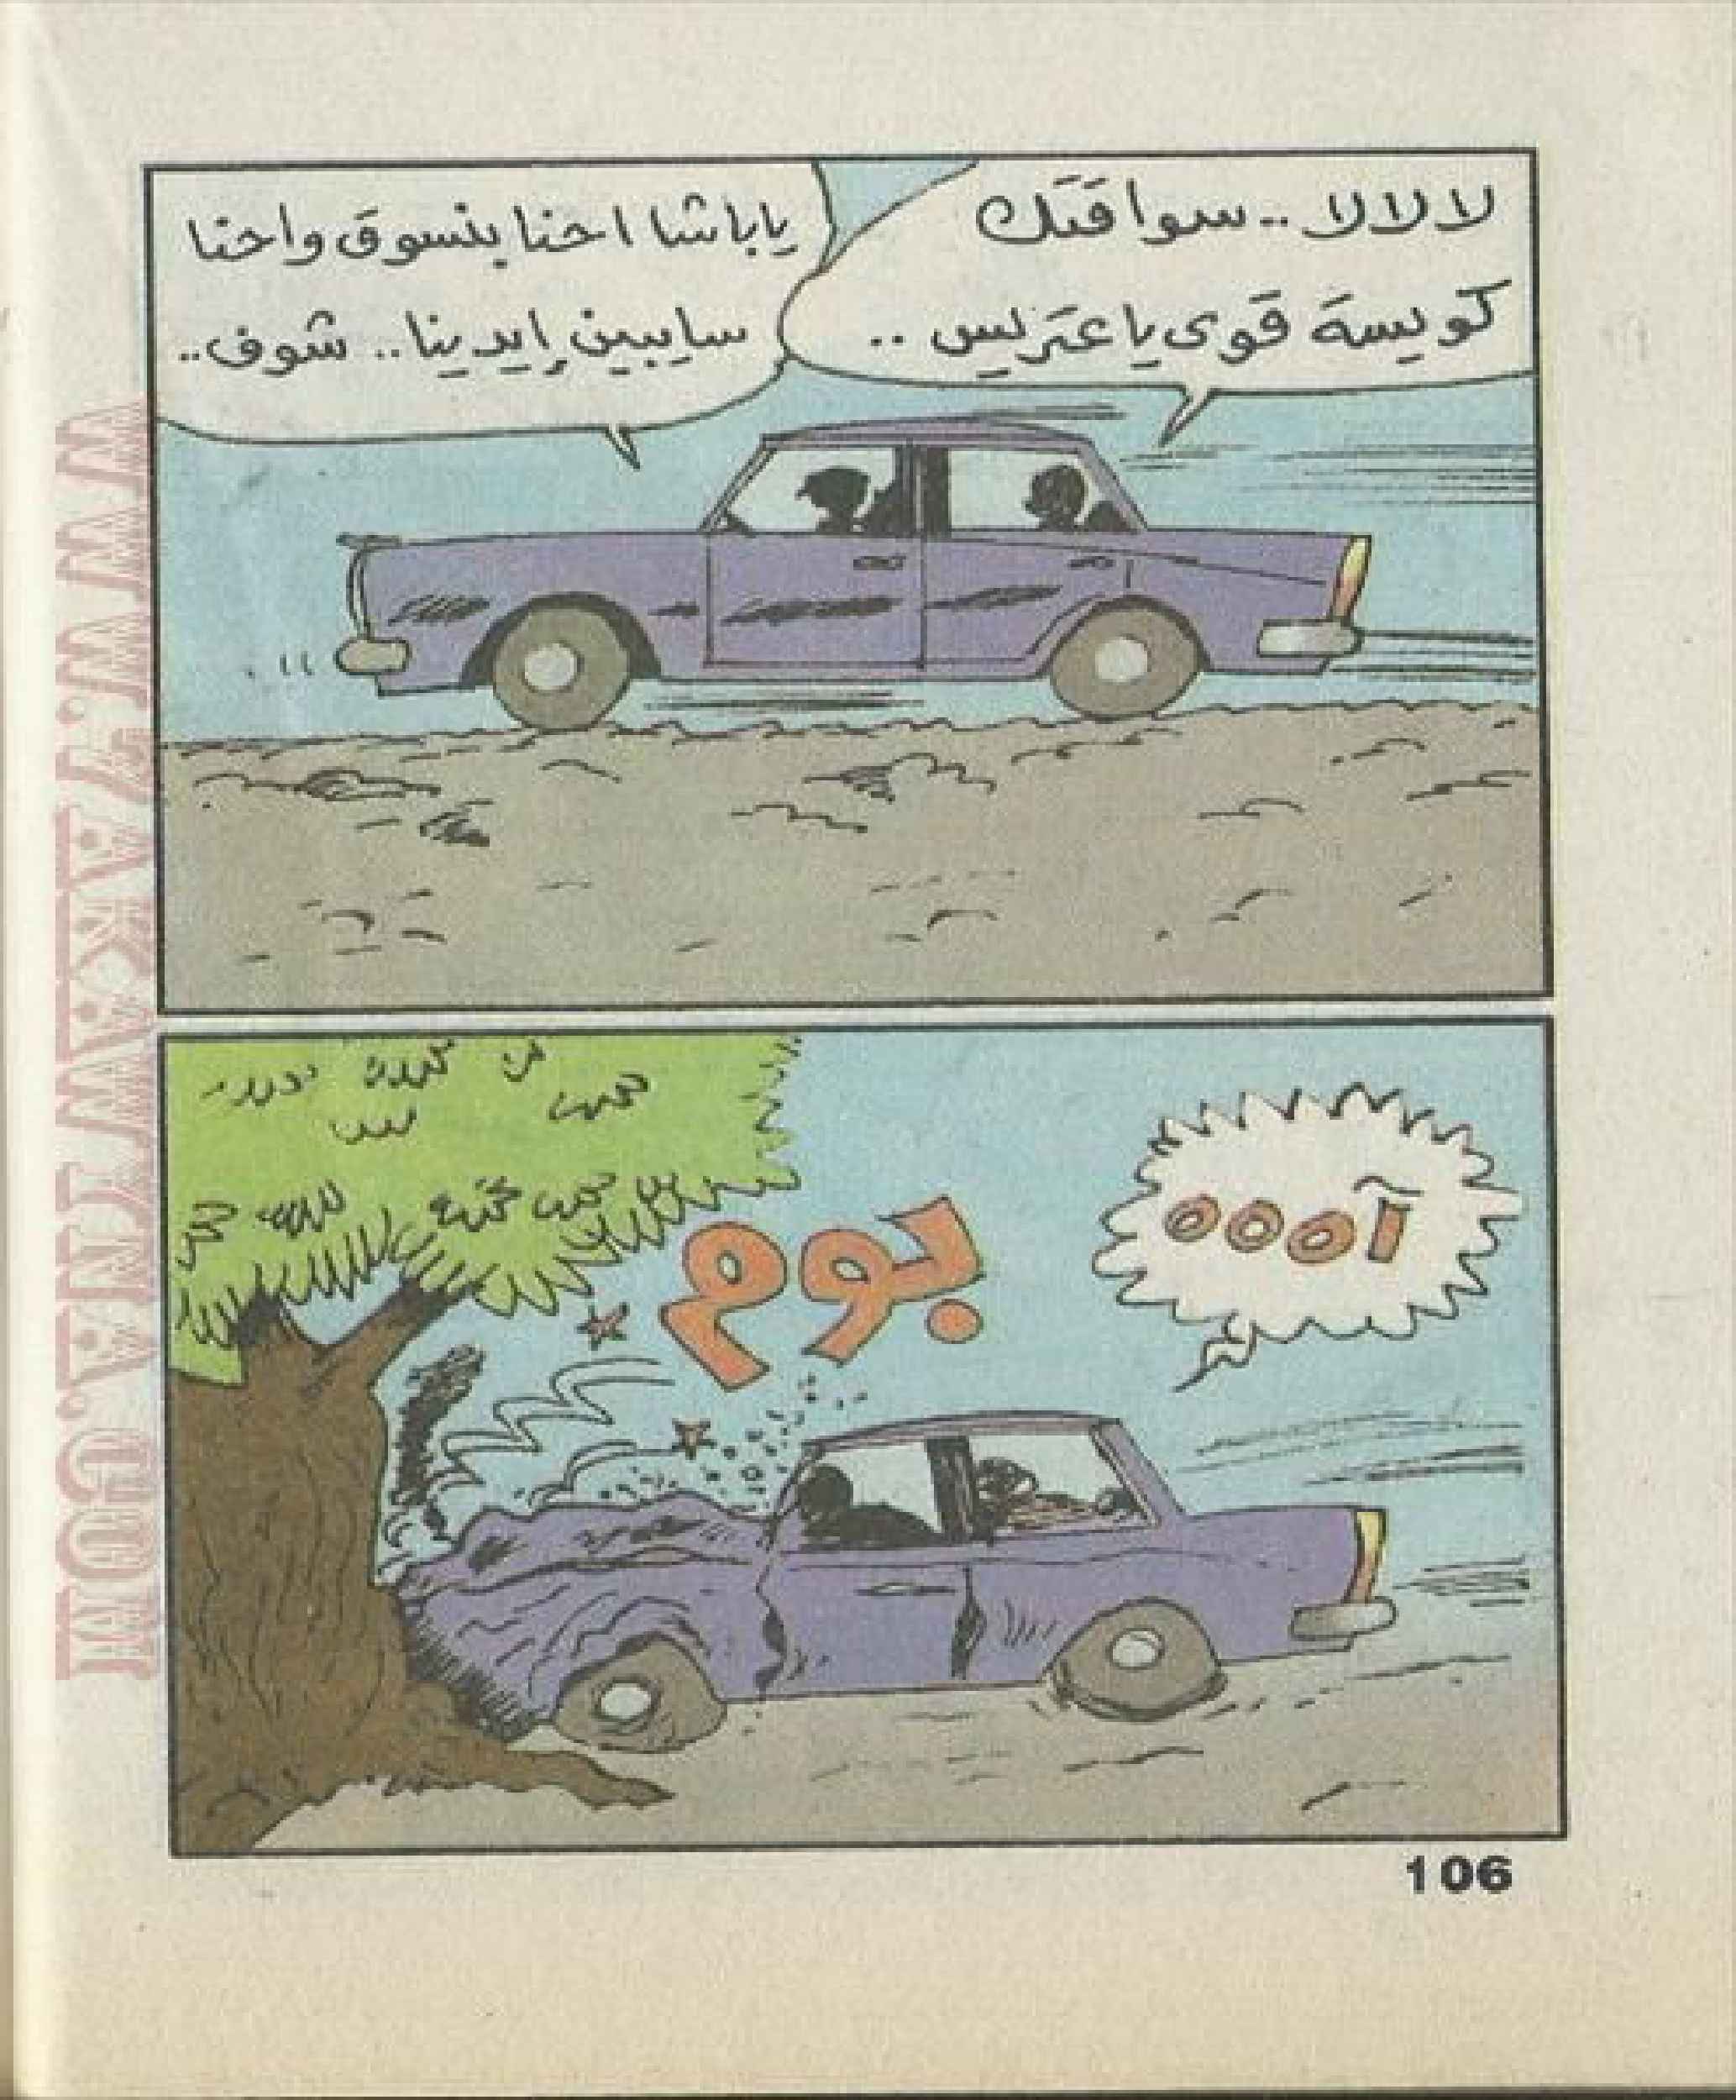 لا لا لا .. سواقتك
كويسة قوى يا عتريس ..
ياباشا احنا بنسوق واحنا
سايبين إيدينا .. شوف ..
آههه
بوم
106
WWW.ARAWTNA.COM